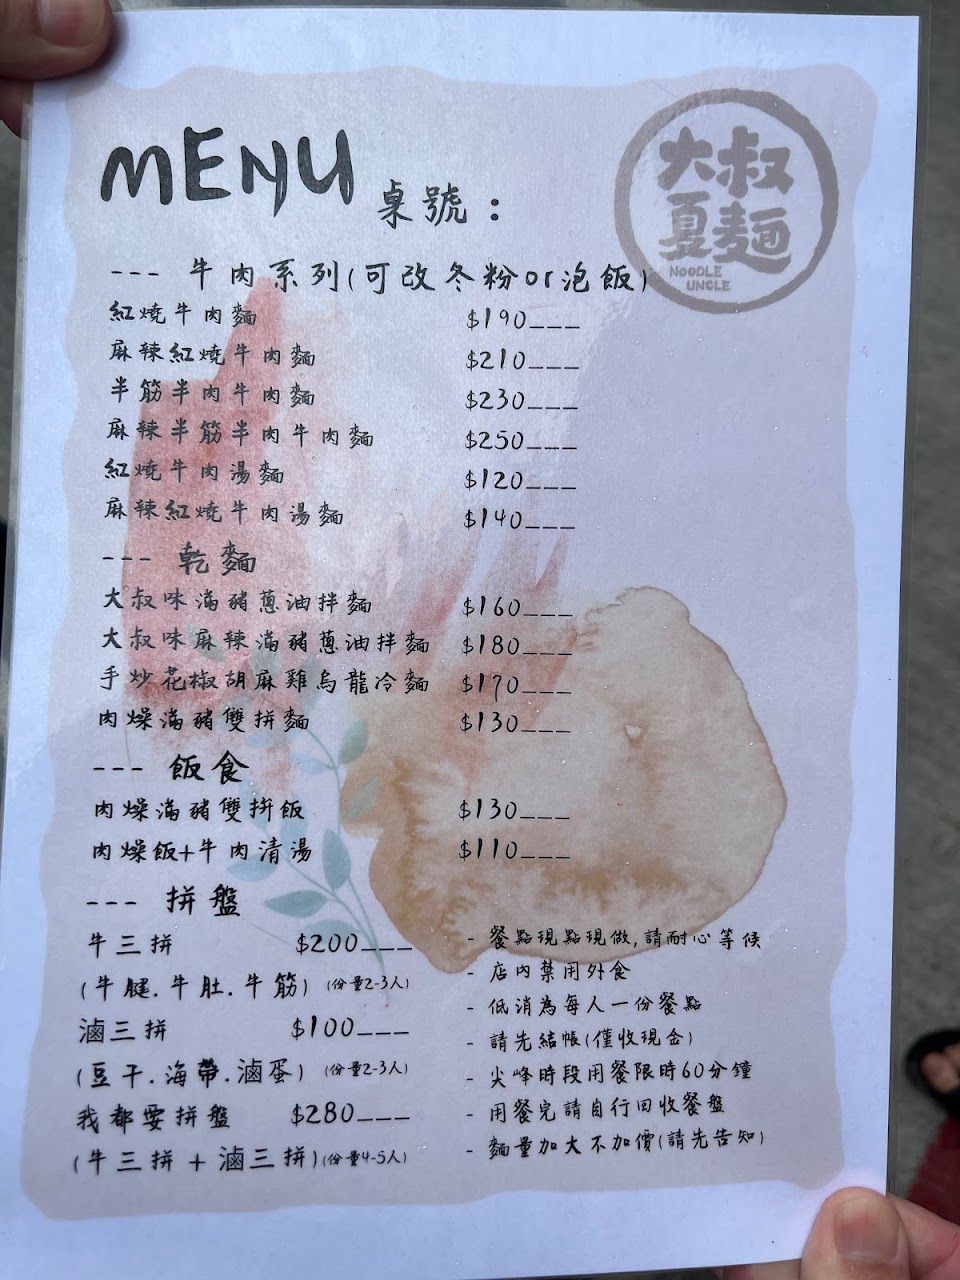 MENU 桌號：
大叔
夏麵
NOODLE
UNCLE
--- 牛肉系列(可改冬粉or泡飯)
紅燒牛肉麵 $190___
麻辣紅燒牛肉麵 $210___
半筋半肉牛肉麵 $230___
麻辣半筋半肉牛肉麵 $250___
紅燒牛肉湯麵 $120___
麻辣紅燒牛肉湯麵 $140___
--- 乾麵
大叔味滿豬蔥油拌麵 $160___
大叔味麻辣滿豬蔥油拌麵 $180___
手炒花椒胡麻雞烏龍冷麵 $170___
肉燥滿豬雙拼麵 $130___
--- 飯食
肉燥滿豬雙拼飯 $130___
肉燥飯+牛肉清湯 $110___
--- 拼盤
牛三拼 $200___
(牛腱.牛肚.牛筋) (份量2-3人)
滷三拼 $100___
(豆干.海帶.滷蛋) (份量2-3人)
我都要拼盤 $280___
(牛三拼 + 滷三拼)(份量4-5人)
- 餐點現點現做,請耐心等候
- 店內禁用外食
- 低消為每人一份餐點
- 請先結帳(僅收現金)
- 尖峰時段用餐限時60分鐘
- 用餐完請自行回收餐盤
- 麵量加大不加價(請先告知)